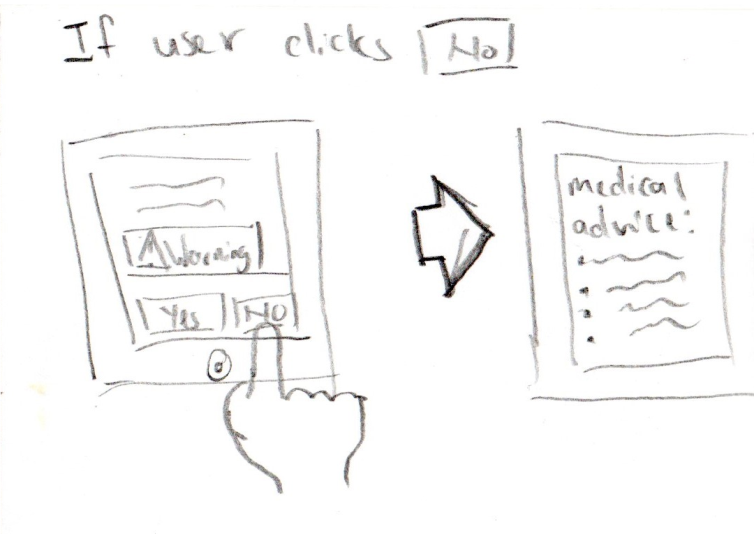 If user clicks No
Warning
Yes
NO
medical
advice: